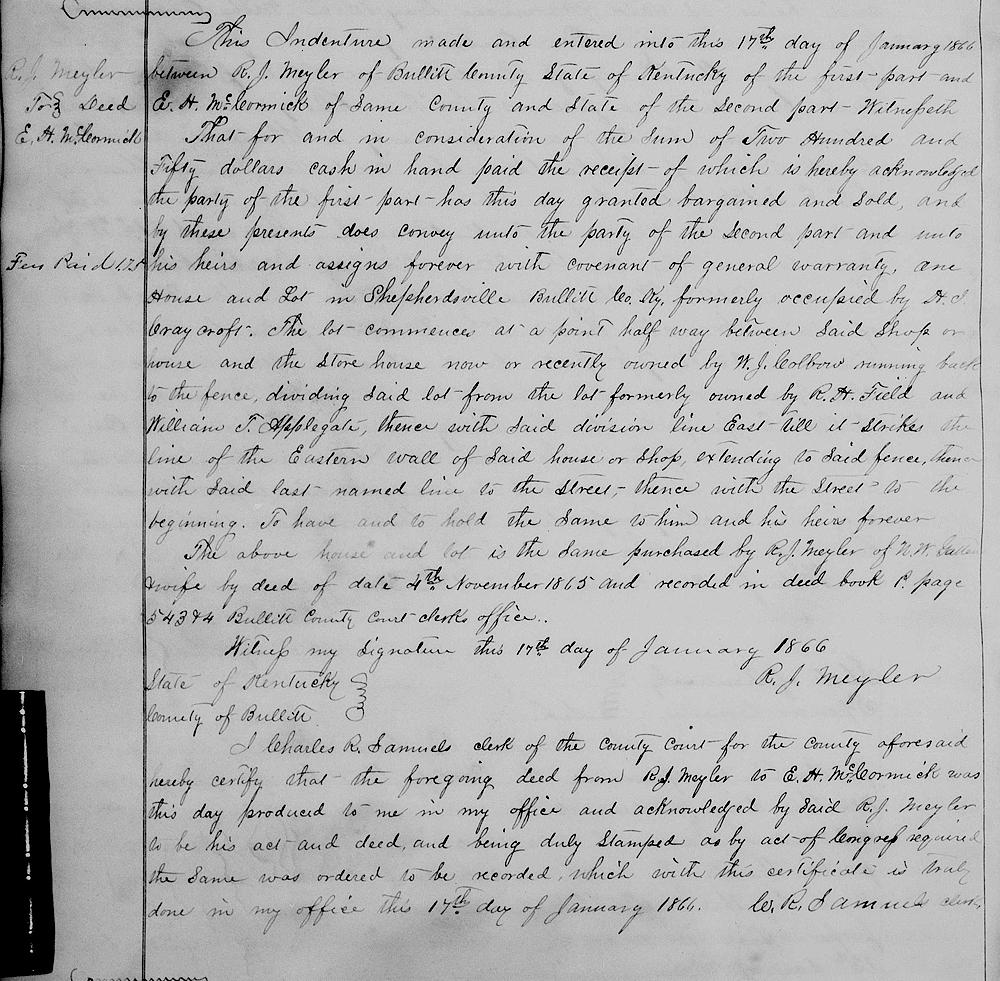 This Indenture made and entered into this 17th day of January 1866
R. J. Meyler
between R. J. Meyler of Bullitt County State of Kentucky of the first part and
To } Deed
E. H. McCormick of Same County and State of the Second part Witnesseth
E. H. McCormick
That for and in consideration of the Sum of Two Hundred and
Fifty dollars cash in hand paid the receipt of which is hereby acknowledged
the party of the first part has this day granted bargained and Sold, and
by these presents does convey unto the party of the Second part and unto
Fees Paid 1.75
his heirs and assigns forever with covenant of general warranty, one
House and Lot in Shepherdsville Bullitt Co, Ky, formerly occupied by H. I.
Craycroft. The lot commences at a point half way between Said Shop or
house and the Store house now or recently owned by W. J. Colbow running back
to the fence, dividing Said lot from the lot formerly owned by R. H. Field and
William T. Applegate, thence with Said division line East till it Strikes the
line of the Eastern wall of Said house or Shop, extending to Said fence, thence
with Said last named line to the Street, thence with the Street to the
beginning. To have and to hold the Same to him and his heirs forever
The above house and lot is the Same purchased by R. J. Meyler of
& wife by deed of date 4th November 1865 and recorded in deed book P. page
543 & 4 Bullitt County Court clerks office.
Witness my Signature this 17th day of January 1866
State of Kentucky R. J. Meyler
County of Bullitt
I Charles R. Samuels clerk of the County Court for the County aforesaid
hereby certify that the foregoing deed from R. J. Meyler to E. H. McCormick was
this day produced to me in my office and acknowledged by Said R. J. Meyler
to be his act and deed, and being duly Stamped as by act of Congress required
the Same was ordered to be recorded, which with this certificate is truly
done in my office this 17th day of January 1866. C. R. Samuels clerk